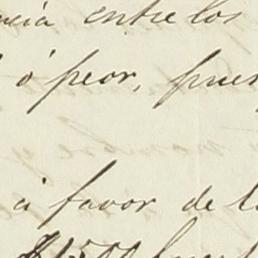 ncia entre los
ó peor, pues
á favor de l
$1500